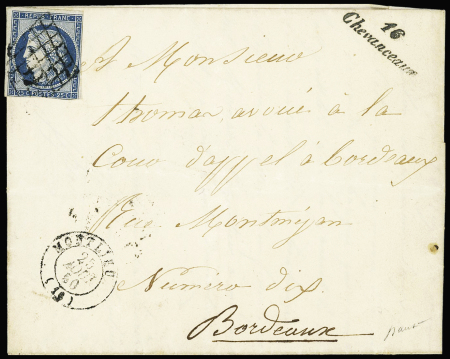 REPUB. FRANC.
25 C. POSTES 25 C.
16
Chevanceaux
A Monsieur
thomas, avoué à la
Cour d'appel à bordeaux
Rue Montméjan
Numéro dix.
Bordeaux
MONTLIEU
25
AOUT
50
(16)